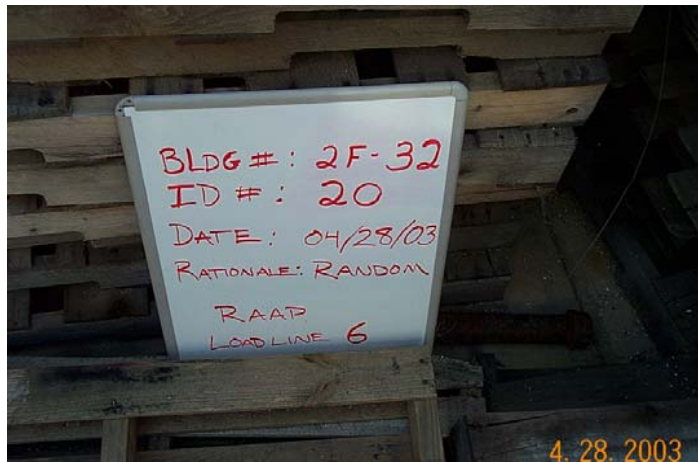 BLDG #: 2F-32
ID #: 20
DATE: 04/28/03
RATIONALE: RANDOM
RAAP
LOAD LINE 6
4. 28. 2003